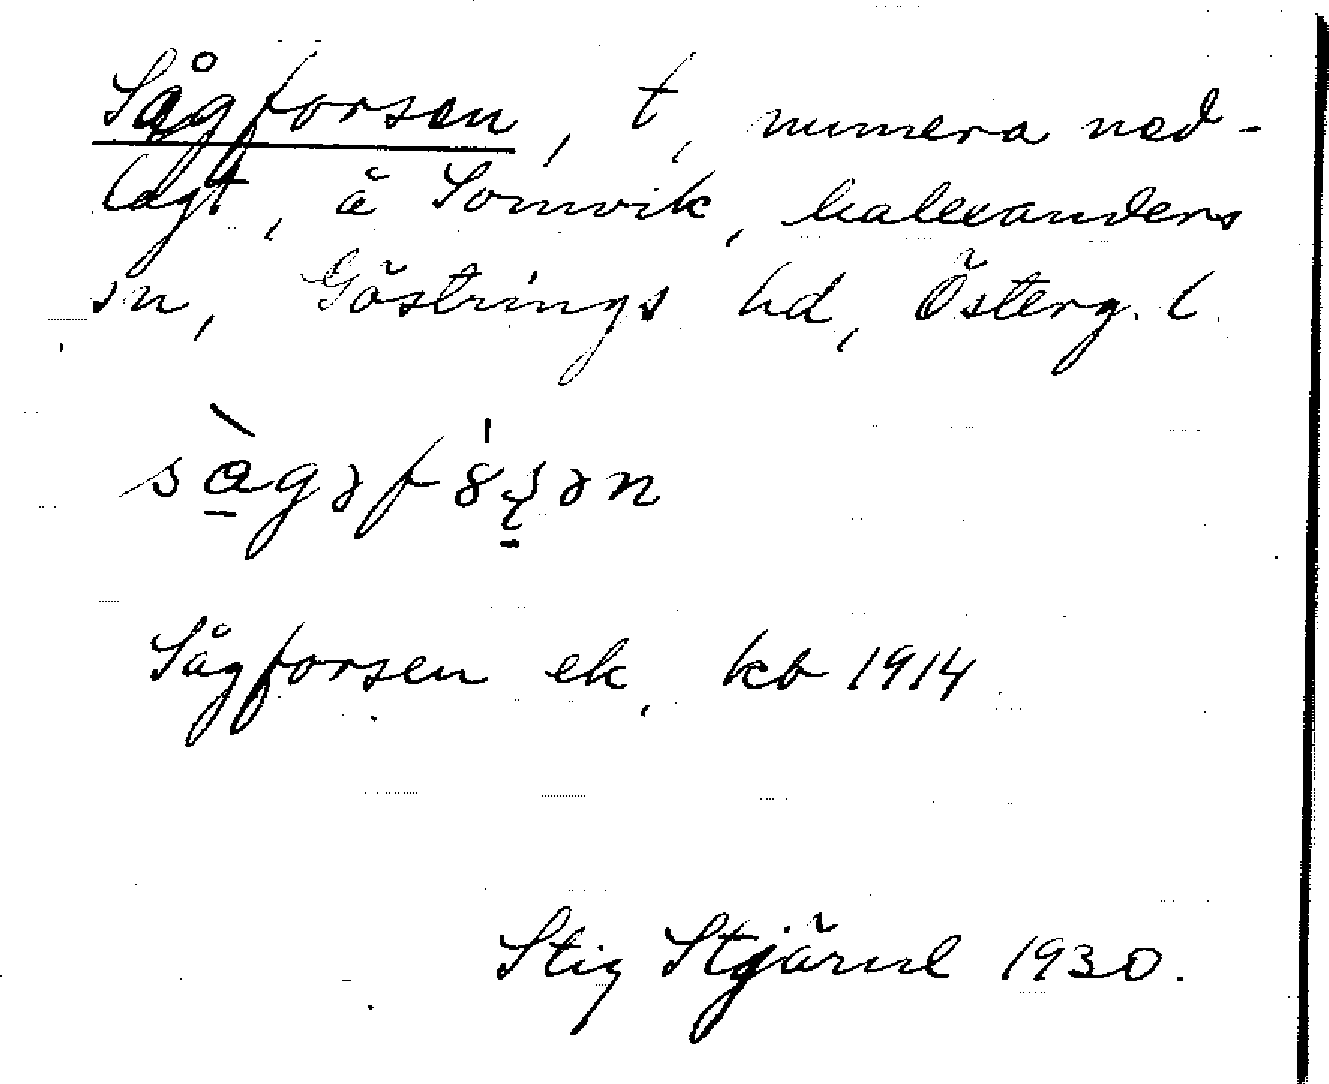 Sågforsen, t, numera ned-
lagt, å Somvik, Ekalexanders
sn, Göstrings hd, Österg. l
Sågforsen ek, kb 1914
Stig Stjärnl 1930.